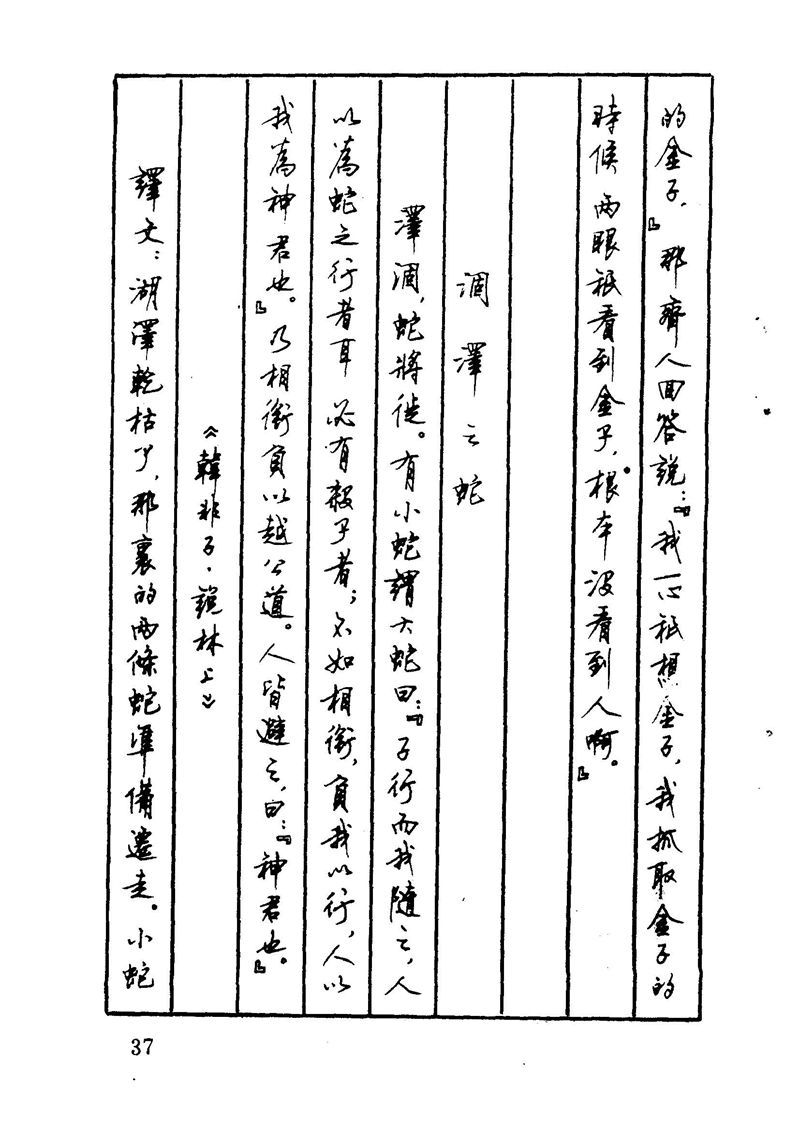 的金子。』那齊人回答說：『我一心祇想金子，我抓取金子的
時候兩眼祇看到金子，根本没看到人啊。』
涸澤之蛇
澤涸，蛇將徙。有小蛇謂大蛇曰：『子行而我隨之，人
以為蛇之行者耳必有殺子者；不如相銜，負我以行，人以
我為神君也。』乃相銜負以越公道。人皆避之，曰：『神君也。』
《韓非子·說林上》
譯文：湖澤乾枯了，那裏的兩條蛇準備遷走。小蛇
37